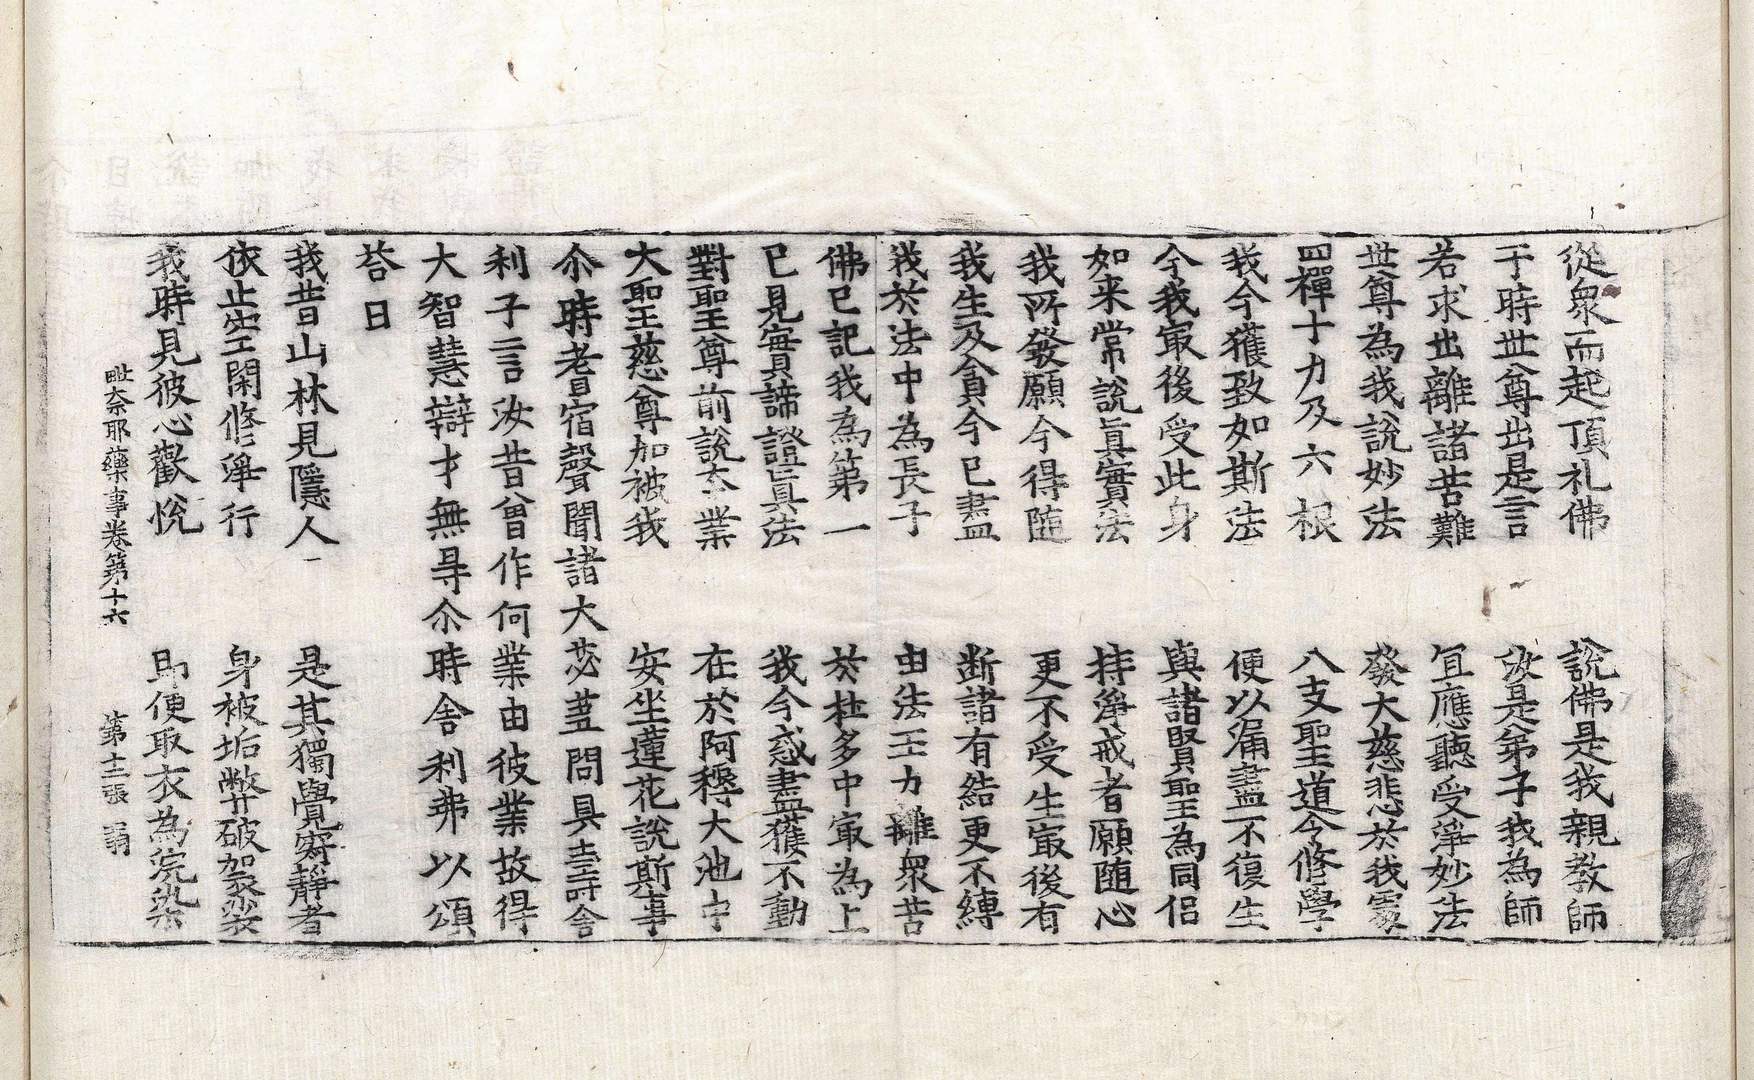 從衆而起頂礼佛　說佛是我親教師
于時世尊出是言　汝是弟子我為師
若求出離諸苦難　冝應聽受淨妙法
世尊為我說妙法　發大慈悲於我處
四禪十力及六根　八支聖道令修學
我今獲致如斯法　便以漏盡不復生
今我㝡後受此身　與諸賢聖為同侶
如来常說真實法　持淨戒者願随心
我所發願今得随　更不受生㝡後有
我生及貪今已盡　断諸有結更不縛
我於法中為長子　由法王力離衆苦
佛已記我為第一　於杜多中㝡為上
已見實諦證真法　我今惑盡獲不動
對聖尊前說夲業　在於阿耨大池中
大聖慈尊加被我　安坐蓮花說斯事
尒時耆宿聲聞諸大苾蒭問具壽舎
利子言汝昔曾作何業由彼業故得
大智慧辯才無㝵尒時舎利弗以頌
荅曰
我昔山林見隱人　是其獨覺寂靜者
依止空閑修筭行　身被垢弊破袈裟
我時見彼心歡悅　即便取衣為浣染
毗奈耶藥事卷第十六　第十二張　翁